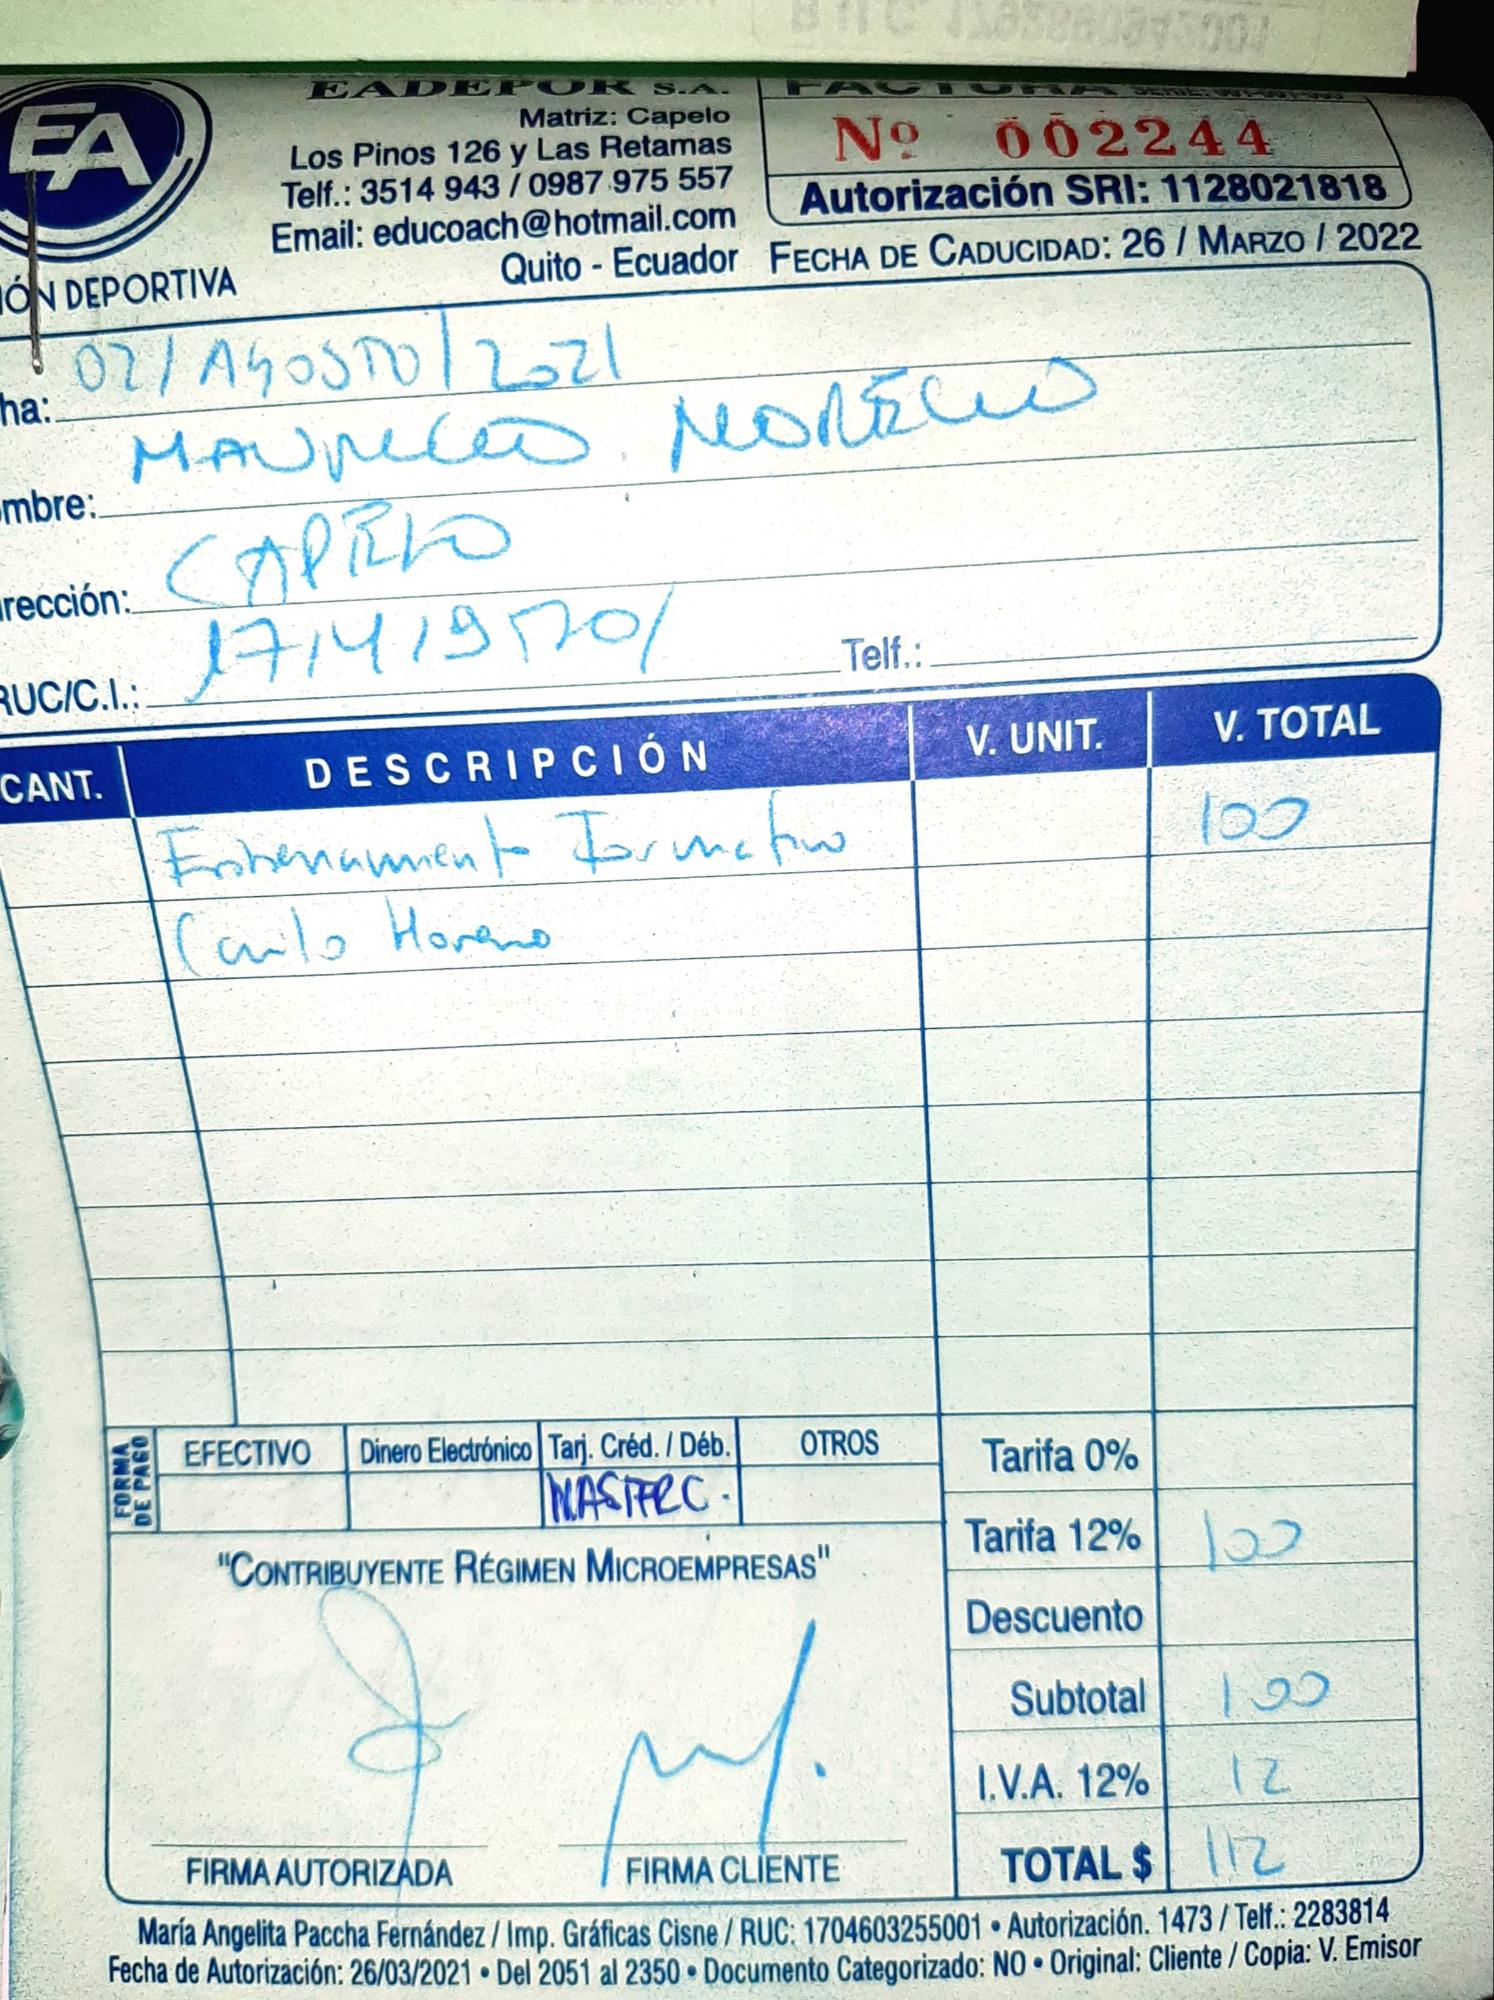 EADEPOR S.A.
Matriz: Capelo
Los Pinos 126 y Las Retamas
Telf.: 3514 943 / 0987 975 557
Email: educoach@hotmail.com
Quito - Ecuador
EA
IÓN DEPORTIVA
FACTURA
Nº 002244
Autorización SRI: 1128021818
FECHA DE CADUCIDAD: 26 / MARZO / 2022
ha: 02/AGOSTO/2021
mbre: MAURICIO MORENO
rección: CAPELO
RUC/C.I.: Telf.:
CANT. DESCRIPCIÓN V. UNIT. V. TOTAL
Entrenamiento Formativo 100
Camilo Moreno
FORMA DE PAGO EFECTIVO Dinero Electrónico Tarj. Créd. / Déb. OTROS
MASTERC.
"CONTRIBUYENTE RÉGIMEN MICROEMPRESAS"
Tarifa 0%
Tarifa 12% 100
Descuento
Subtotal 100
I.V.A. 12% 12
TOTAL $ 112
FIRMA AUTORIZADA FIRMA CLIENTE
María Angelita Paccha Fernández / Imp. Gráficas Cisne / RUC: 1704603255001 • Autorización. 1473 / Telf.: 2283814
Fecha de Autorización: 26/03/2021 • Del 2051 al 2350 • Documento Categorizado: NO • Original: Cliente / Copia: V. Emisor